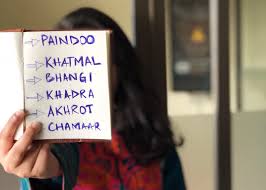 → PAINDOO
→ KHATMAL
→ BHANGI
→ KHADRA
→ AKHROT
→ CHAMAAR